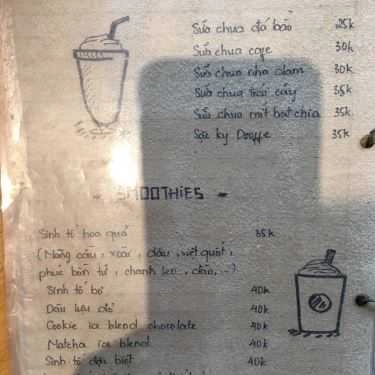 Sữa chua đá bào 25k
Sữa chua cafe 30k
Sữa chua nha đam 30k
Sữa chua trái cây 35k
Sữa chua mít hạt chia 35k
35k
- SMOOTHIES -
Sinh tố hoa quả 35k
(Mãng cầu, xoài, dâu, việt quất,
phúc bồn tử, chanh leo, đào, ...)
Sinh tố bơ 40k
Dâu lựu đỏ 40k
Cookie ice blend chocolate 40k
Matcha ice blend 40k
Sinh tố đặc biệt 40k